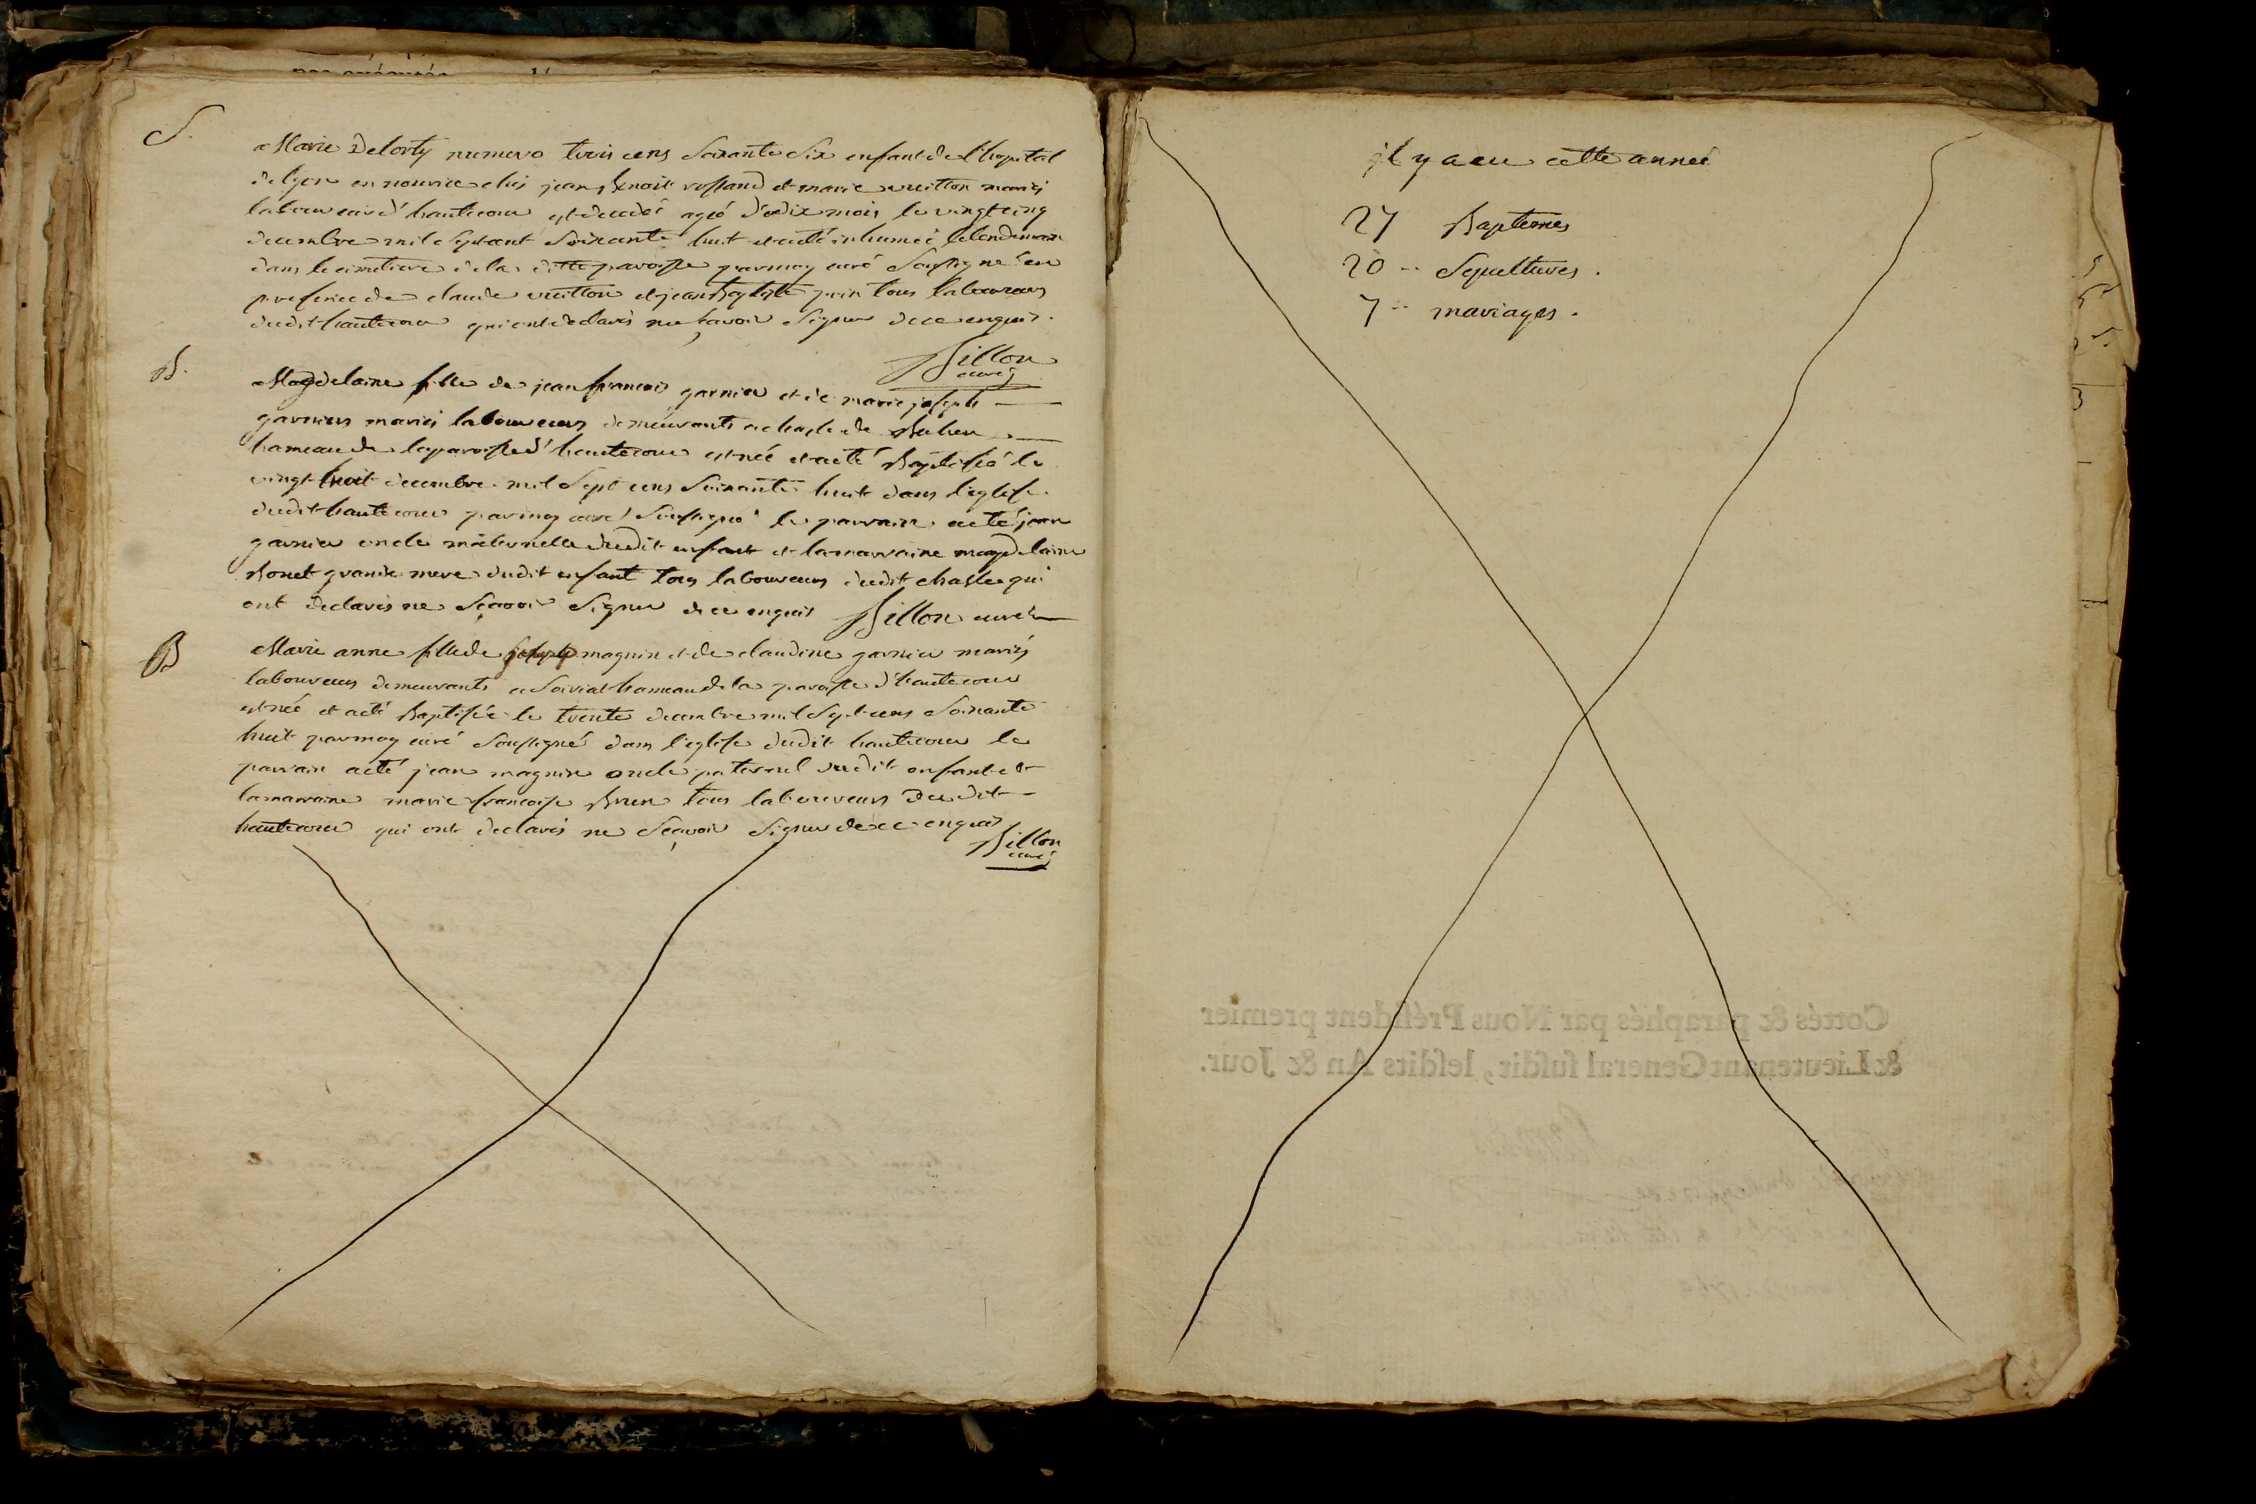 S.
Marie Delorty numero trois cens soixante six enfant de l'hopital
de lyon en nourice chés jean benoit rossand et marie vuitton mariés
laboureurs d'hautecour est decedéé ageé de dix mois le vingt cinq
decembre mil sept cent soixante huit et a eté inhumeé le lendemain
dans le cimetiere de la ditte paroisse par moy curé soussigné en
presence de claude vuitton et jean baptiste tous laboureurs
dudit hautecour qui ont declarés ne savoir signer de ce enquis.
Billon
curé
B.
Magdelaine fille de jean francois garnier et de marie joseph
garniers mariés laboureurs demeurants a chasle de
hameau de la paroisse d'hautecour est néé et a eté baptiséé le
vingt huit decembre mil sept cens soixante huit dans l'eglise
dudit hautecour par moy curé soussigné le parrain a eté jean
garnier oncle maternelle dudit enfant et la marraine magdelaine
bonet grande mere dudit enfant tous laboureurs dudit chasle qui
ont declarés ne sçavoir signer de ce enquis Billon curé
B
Marie anne fille de joseph magnin et de claudine garnier mariés
laboureurs demeurants a soiriat hameau de la paroisse d'hautecour
est néé et a eté baptiséé le trente decembre mil sept cens soixante
huit par moy curé soussigné dans l'eglise dudit hautecour le
parrain a eté jean magnin oncle paternel dudit enfant et
la marraine marie francoise brun tous laboureurs dudit
hautecour qui ont declarés ne sçavoir signer de ce enquis
Billon
curé
il y a eu cette anneé
27 Baptemes
20 -- Sepultures.
7 -- mariages.
Cottés & paraphés par Nous Président premier
& Lieutenant General susdit, lesdits An & Jour.